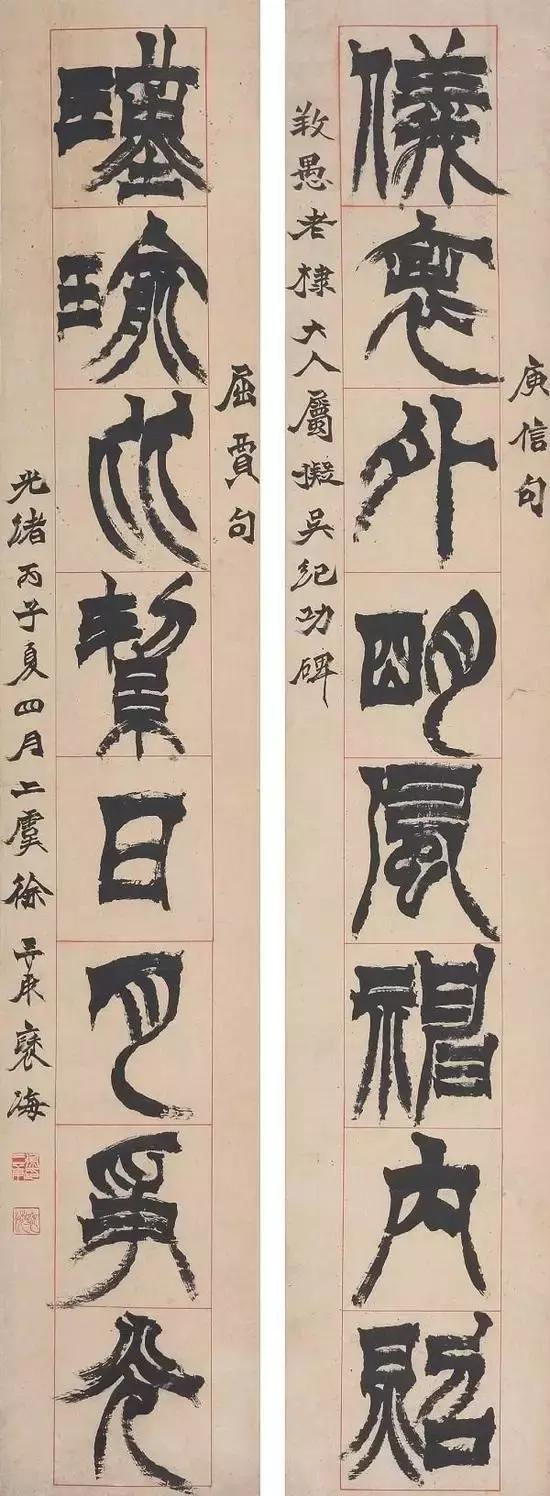 庾信句
儀表外明風神內照
愚老棣大人屬擬吳紀功碑
屈賈句
瑾瑜比絜日月爭光
光緒丙子夏四月上虞徐三庚褎海